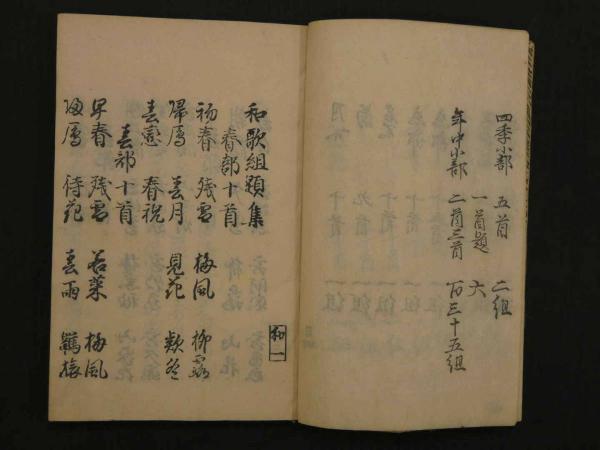 四季小部 五首 二組
一首題 六
年中小部 二首三首 百三十五組
和歌組題集
春部十首
初春 残雪 梅風 柳露
帰鴈 春月 見花 款冬
春恋 春祝
春部十首
早春 残雪 若菜 梅風
帰鴈 待花 春雨 羇旅
和一